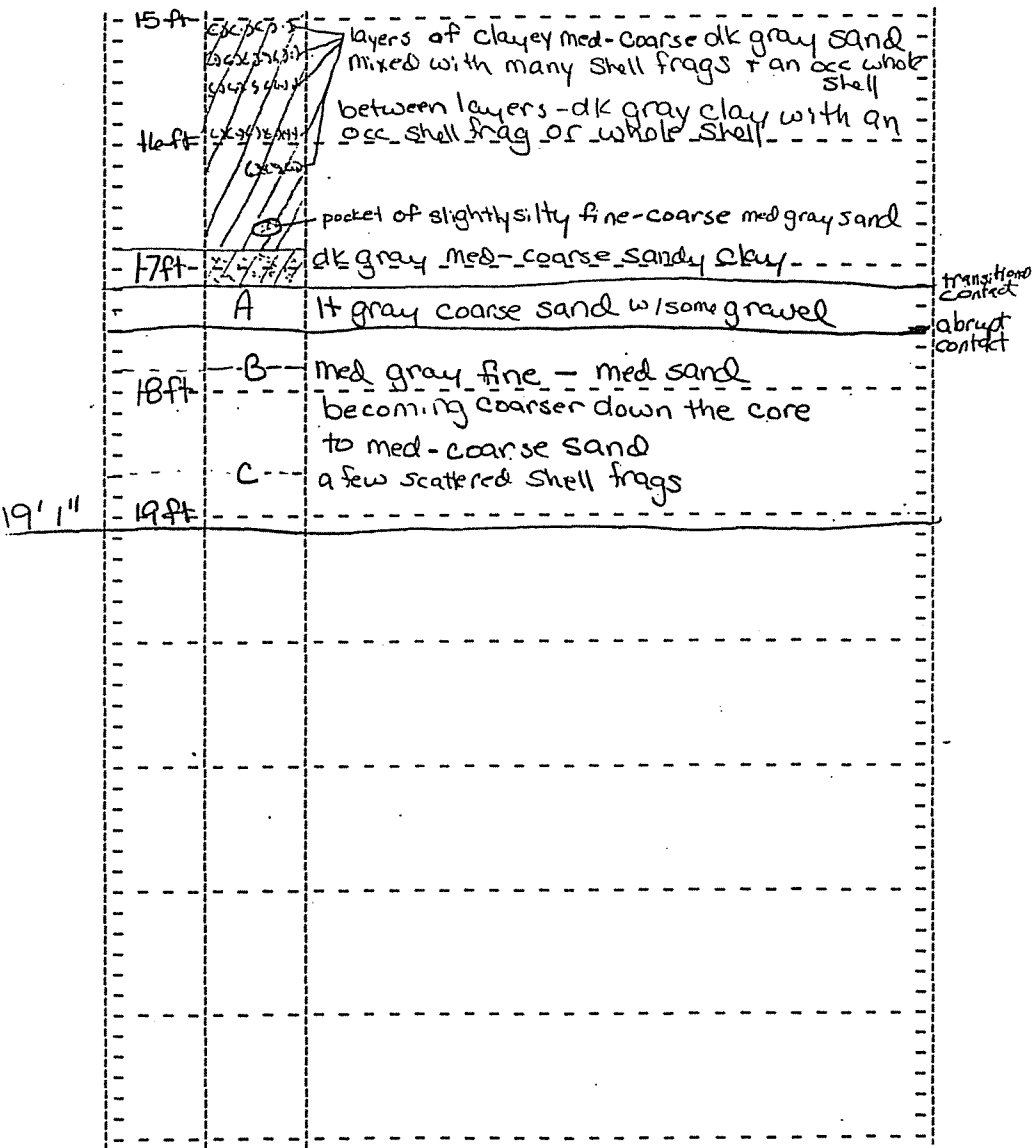 15 ft
layers of clayey med-coarse dk gray sand
mixed with many shell frags + an occ whole
shell
between layers - dk gray clay with an
occ shell frag or whole shell
16ft
pocket of slightly silty fine-coarse med gray sand
17ft
dk gray med-coarse sandy clay
transitional
contact
A
lt gray coarse sand w/some gravel
abrupt
contact
B
med gray fine - med sand
18ft
becoming coarser down the core
to med-coarse sand
C
a few scattered shell frags
19'1"
19ft